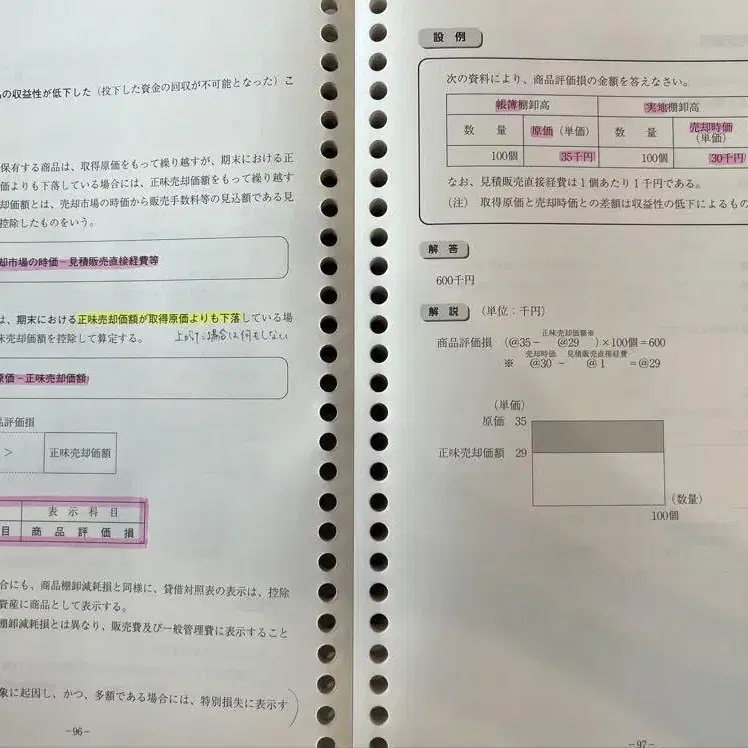 の収益性が低下した（投下した資金の回収が不可能となった）こ
保有する商品は、取得原価をもって繰り越すが、期末における正
価よりも下落している場合には、正味売却価額をもって繰り越す
却価額とは、売却市場の時価から販売手数料等の見込額である見
控除したものをいう。
却市場の時価－見積販売直接経費等
は、期末における正味売却価額が取得原価よりも下落している場
味売却価額を控除して算定する。 上がった場合は何もしない
原価－正味売却価額
品評価損
＞ 正味売却価額
表示科目
目 商品評価損
合にも、商品棚卸減耗損と同様に、貸借対照表の表示は、控除
資産に商品として表示する。
棚卸減耗損とは異なり、販売費及び一般管理費に表示すること
象に起因し、かつ、多額である場合には、特別損失に表示す
－96－
設例
次の資料により、商品評価損の金額を答えなさい。
帳簿棚卸高 実地棚卸高
数量 原価（単価） 数量 売却時価（単価）
100個 35千円 100個 30千円
なお、見積販売直接経費は1個あたり1千円である。
（注） 取得原価と売却時価との差額は収益性の低下によるもの
解答
600千円
解説 （単位：千円）
正味売却価額※
商品評価損 （@35－ @29 ）×100個＝600
売却時価 見積販売直接経費
※ @30 － @1 ＝@29
（単価）
原価 35
正味売却価額 29
（数量）
100個
－97－